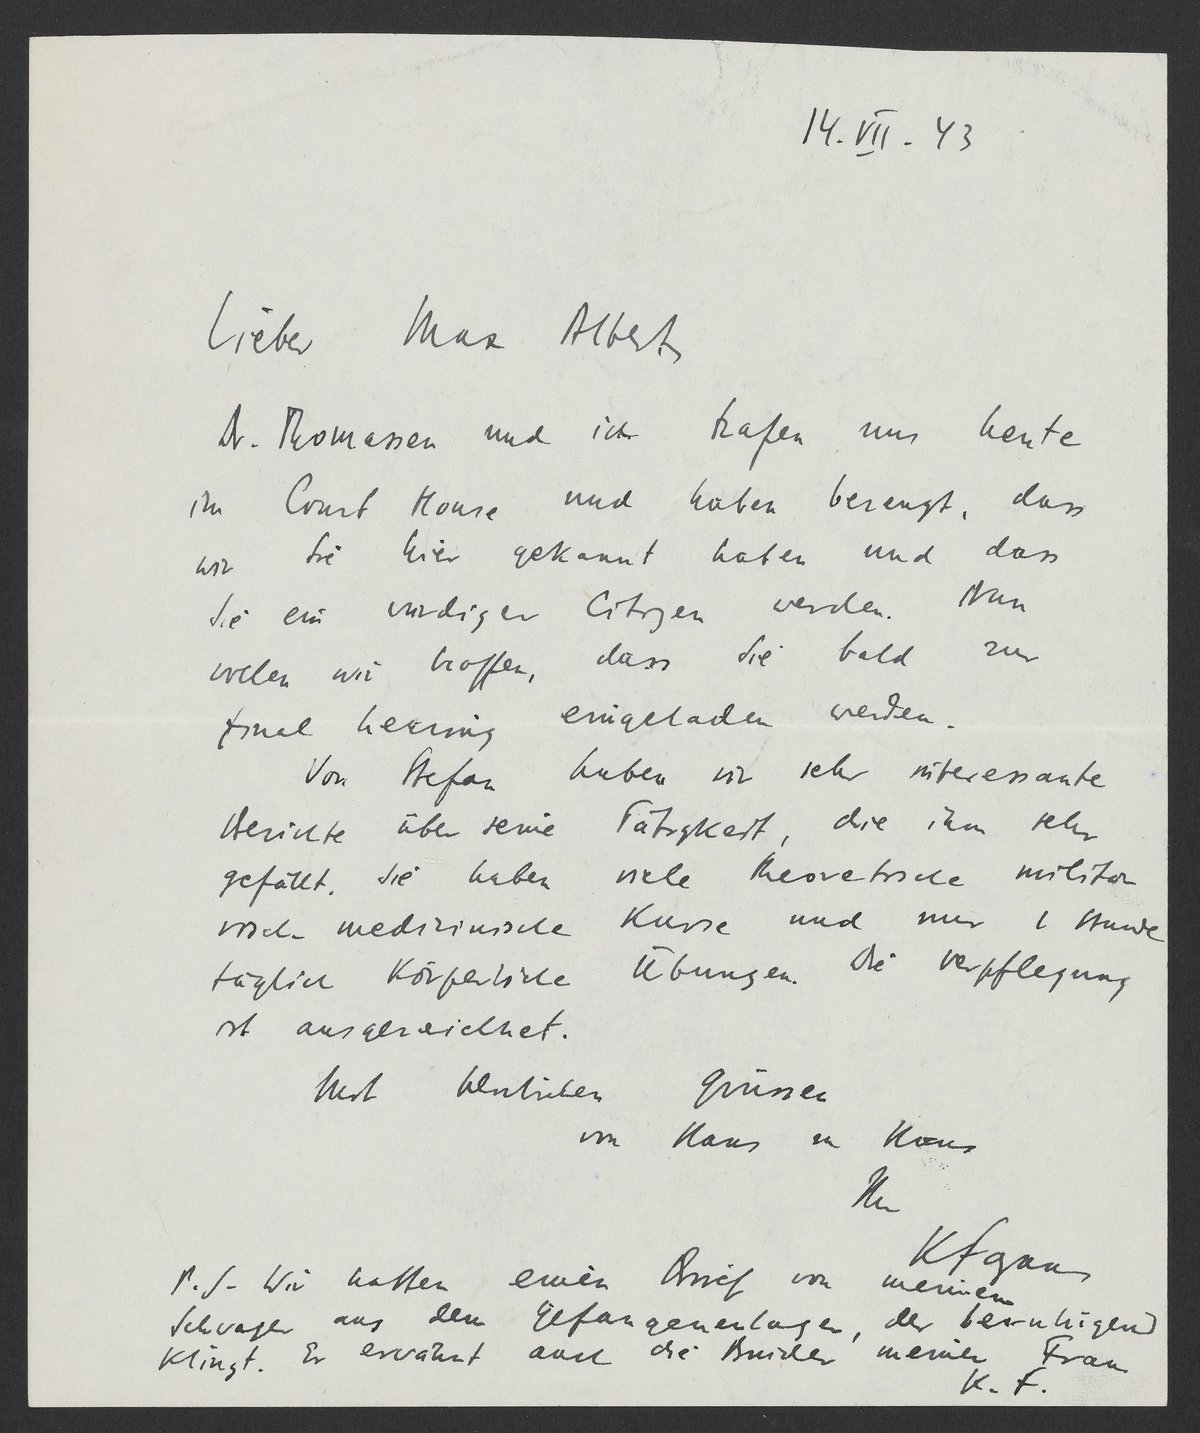 14. VII. 43
Lieber Max Albert,
Dr. Thomassen und ich trafen uns heute
im Court House und haben bezeugt, dass
wir Sie hier gekannt haben und dass
Sie ein würdiger Citizen werden. Nun
wollen wir hoffen, dass Sie bald zur
final hearing eingeladen werden.
Von Stefan haben wir sehr interessante
Berichte über seine Tätigkeit, die ihm sehr
gefällt. Sie haben viele theoretische militär
medizinische Kurse und nur 1 Stunde
täglich körperliche Übungen. Die Verpflegung
ist ausgezeichnet.
Mit herzlichen Grüssen
von Haus zu Haus
Ihr
P.S. Wir hatten einen Brief von meinem
Schwager aus dem Gefangenenlager, der beruhigend
klingt. Er erwähnt auch die Brüder meiner Frau
K. F.